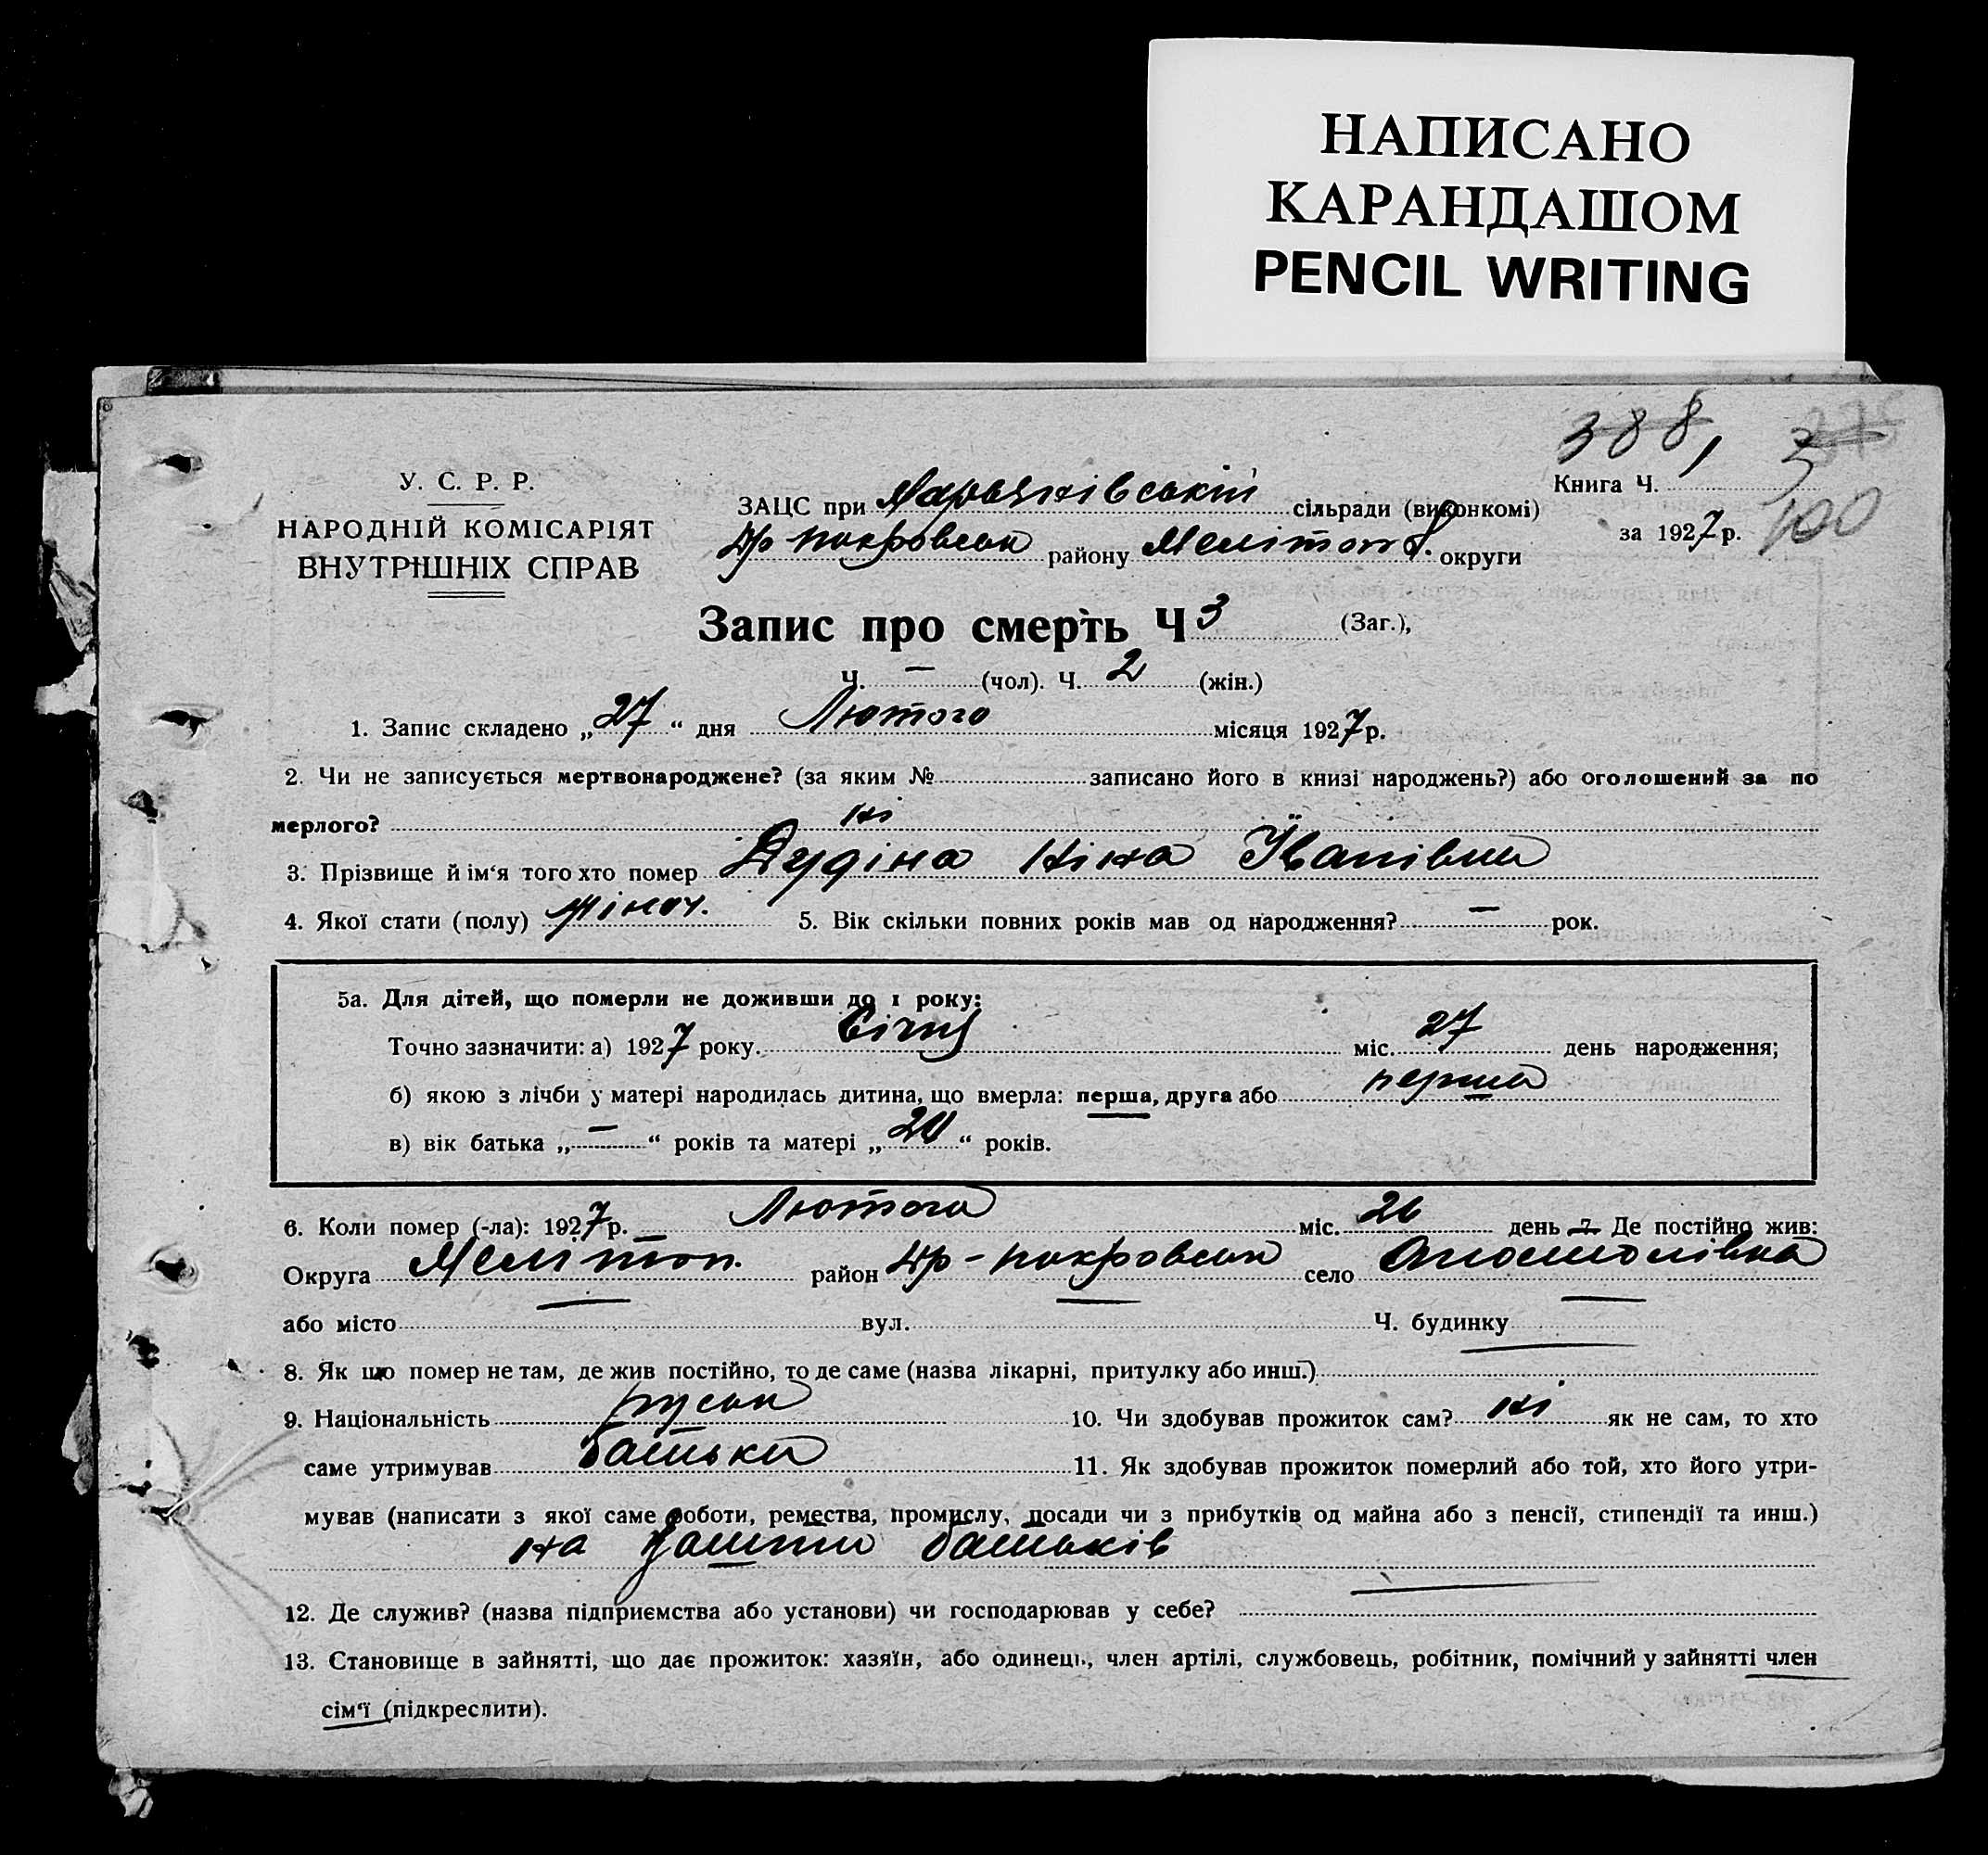 НАПИСАНО
КАРАНДАШОМ
PENCIL WRITING
388, 3
100
У. С. Р. Р.
НАРОДНІЙ КОМІСАРІЯТ
ВНУТРІШНІХ СПРАВ
ЗАЦС при сільради (виконкомі)
Др покровськ району Мелітоп. округи
Книга Ч.
за 1927 р.
Запис про смерть Ч 3 (Заг.),
Ч. — (чол). Ч. 2 (жін.)
1. Запис складено „27“ дня Лютого місяця 1927 р.
2. Чи не записується мертвонароджене? (за яким № записано його в книзі народжень?) або оголошений за по
мерлого? ні
3. Прізвище й ім‘я того хто помер Дудіна Ніна Іванівна
4. Якої стати (полу) жіноч. 5. Вік скільки повних років мав од народження? — рок.
5а. Для дітей, що померли не доживши до 1 року:
Точно зазначити: а) 1927 року. Січня міс. 27 день народження;
б) якою з лічби у матері народилась дитина, що вмерла: перша, друга або перша
в) вік батька „—“ років та матері „20“ років.
6. Коли помер (-ла): 1927 р. Лютого міс. 26 день 7. Де постійно жив:
Округа Мелітоп. район Др-покровськ село Апостолівка
або місто вул. Ч. будинку
8. Як що помер не там, де жив постійно, то де саме (назва лікарні, притулку або инш.)
9. Національність руськ 10. Чи здобував прожиток сам? ні як не сам, то хто
саме утримував батьки 11. Як здобував прожиток померлий або той, хто його утри-
мував (написати з якої саме роботи, ремества, промислу, посади чи з прибутків од майна або з пенсії, стипендії та инш.)
на кошти батьків
12. Де служив? (назва підприємства або установи) чи господарював у себе?
13. Становище в зайнятті, що дає прожиток: хазяїн, або одинець, член артілі, службовець, робітник, помічний у зайнятті член
сім‘ї (підкреслити).